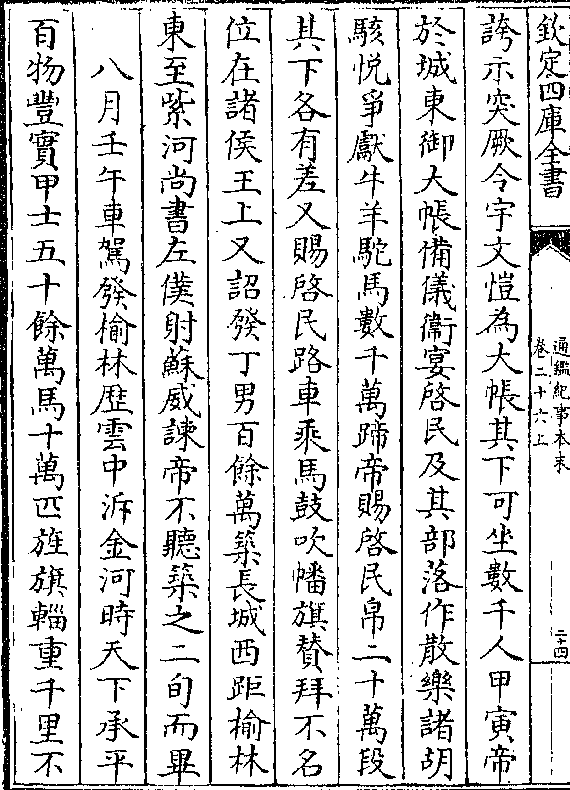 欽定四庫全書
通鑑紀事本末
卷二十六上
二十四
誇示突厥令宇文愷為大帳其下可坐數千人甲寅帝
於城東御大帳備儀衞宴啓民及其部落作散樂諸胡
駭悅爭獻牛羊駝馬數千萬蹄帝賜啓民帛二十萬段
其下各有差又賜啓民路車乘馬鼓吹幡旗贊拜不名
位在諸侯王上又詔發丁男百餘萬築長城西距榆林
東至紫河尚書左僕射蘇威諫帝不聽築之二旬而畢
八月壬午車駕發榆林歴雲中泝金河時天下承平
百物豐實甲士五十餘萬馬十萬匹旌旗輜重千里不